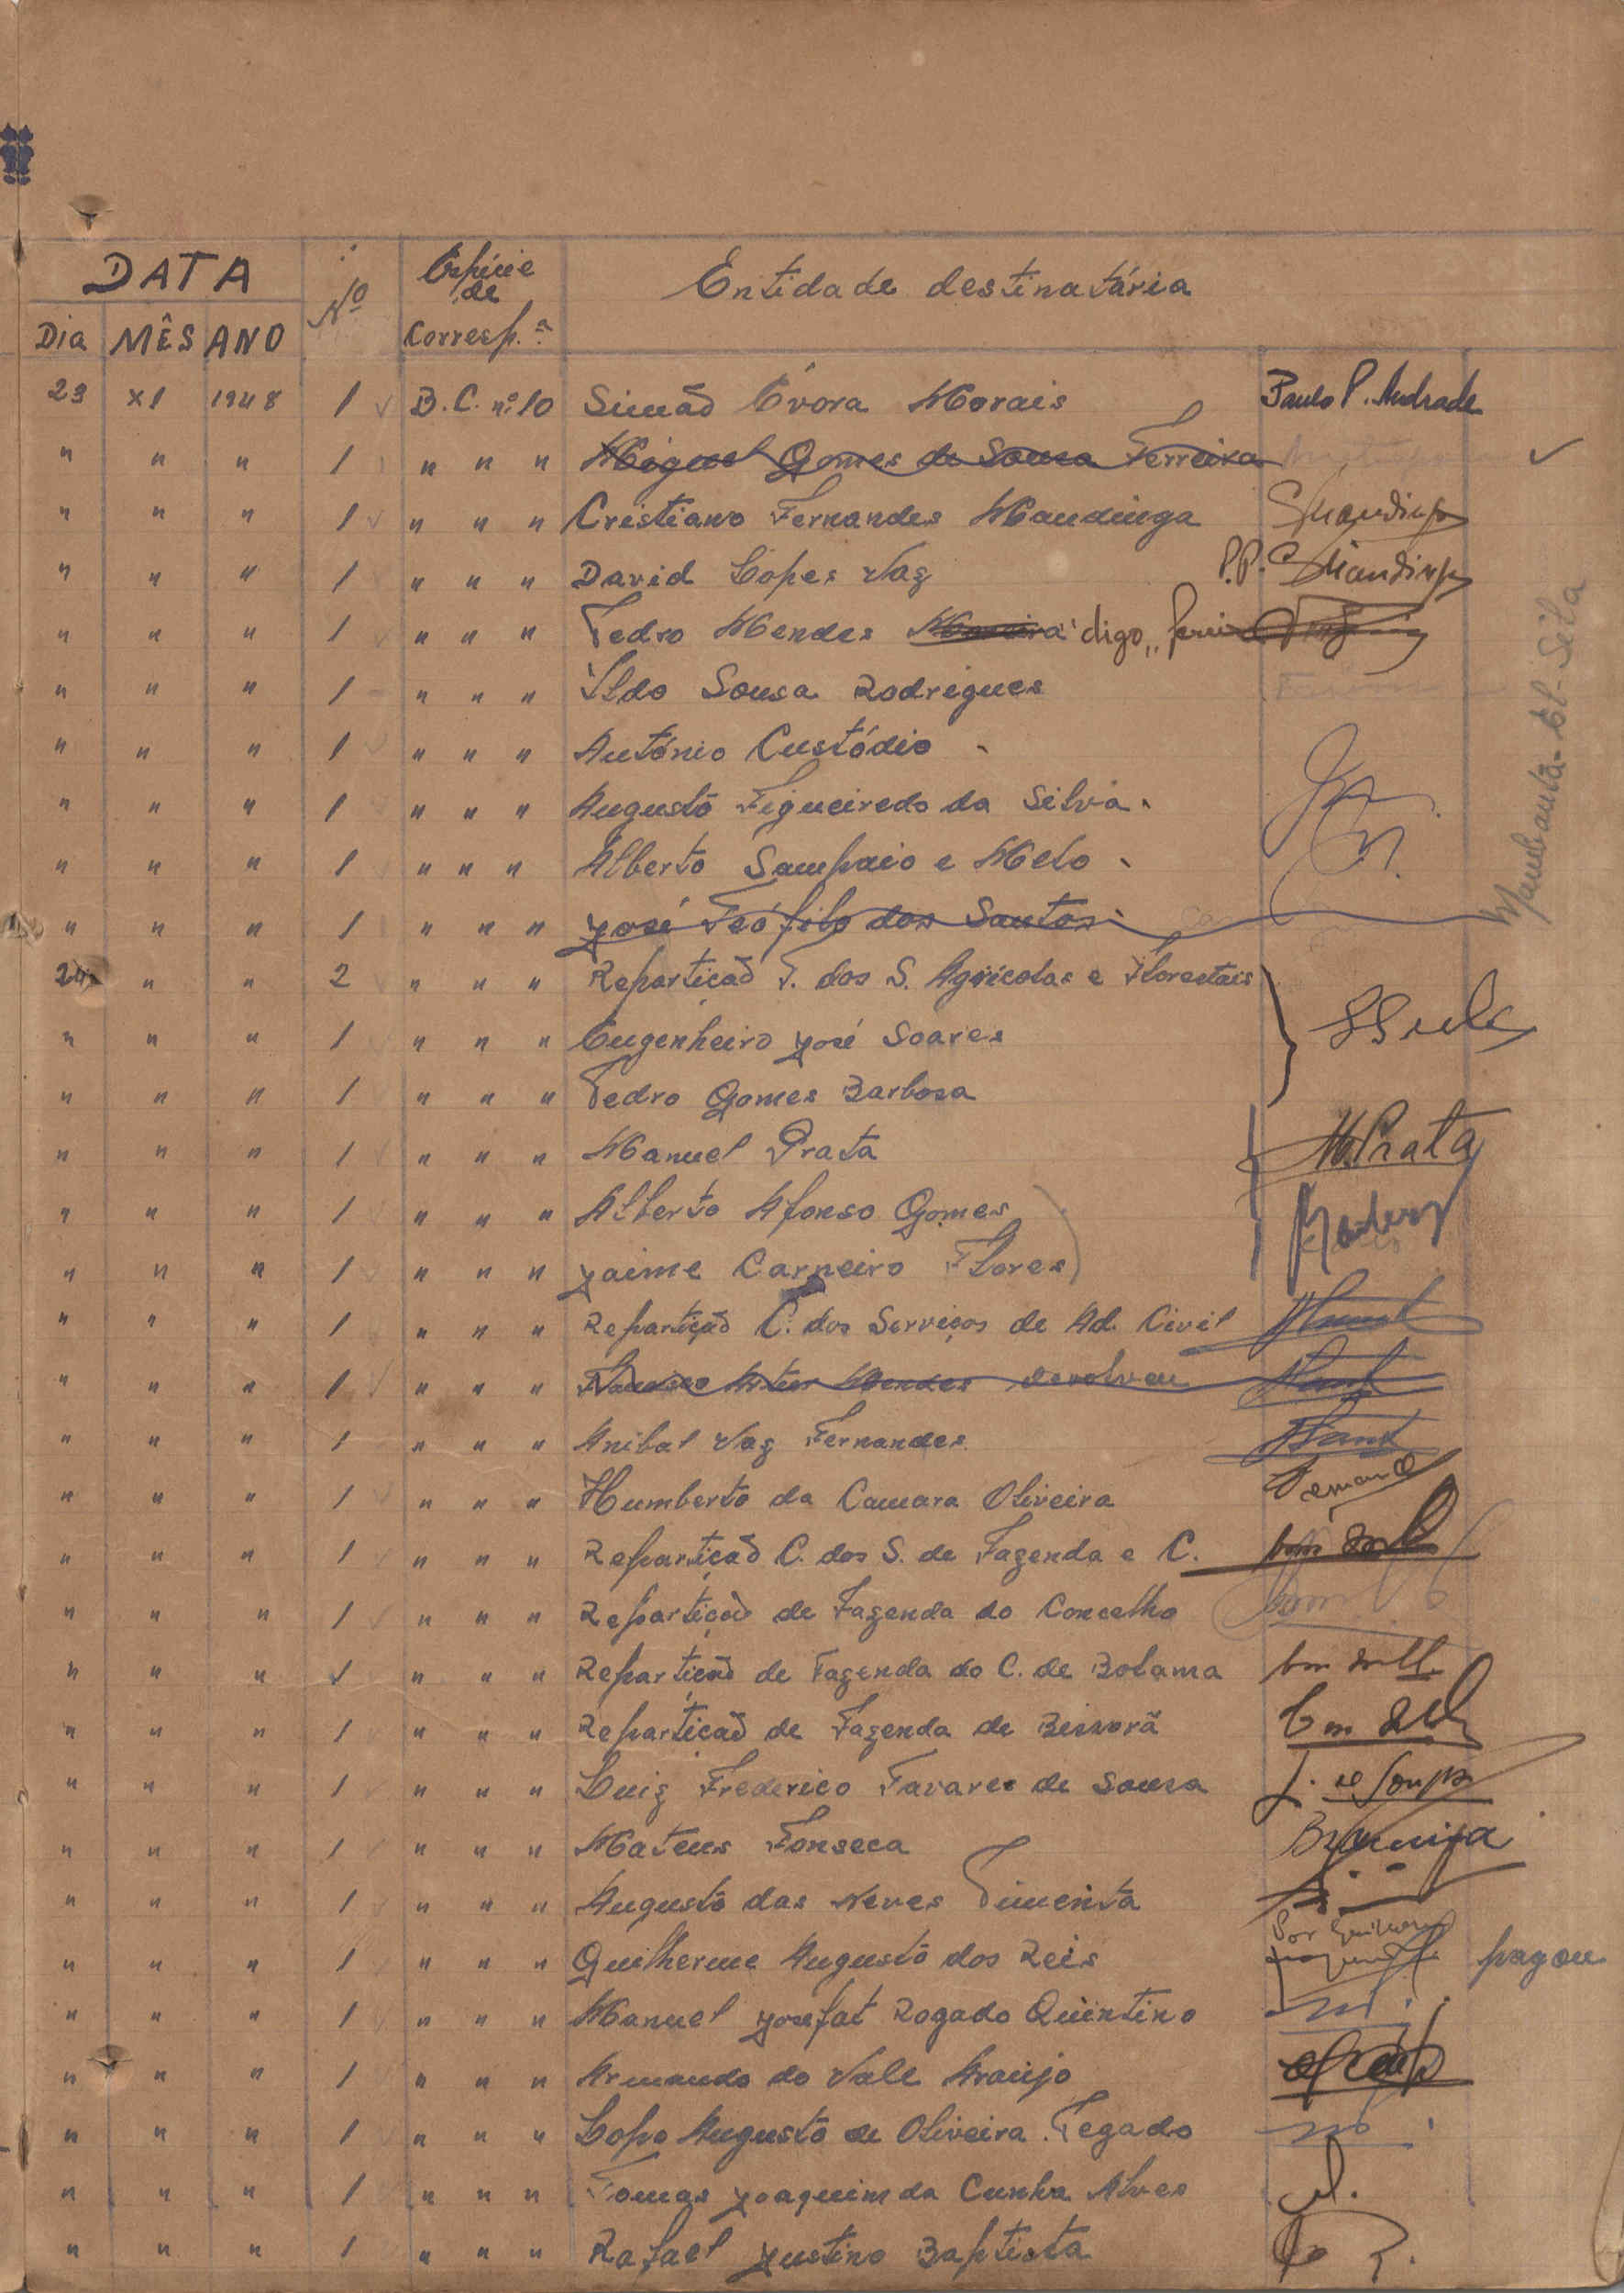 DATA Nº Espécie de Corresp.ª Entidade destinatária
Dia MÊS ANO
23 XI 1948 1 B.C. nº 10 Simão Évora Morais Paulo P. Andrade
" " " 1 " " " Miguel Gomes de Sousa Ferreira
" " " 1 " " " Cristiano Fernandes Mandinga CMandinga
" " " 1 " " " David Lopes Vaz P.P. CMandinga
" " " 1 " " " Pedro Mendes Moreira digo,,
" " " 1 " " " Ildo Sousa Rodrigues
" " " 1 " " " António Custódio
" " " 1 " " " Augusto Figueiredo da Silva
" " " 1 " " " Alberto Sampaio e Melo
" " " 1 " " " José Teófilo dos Santos
24 " " 2 " " " Repartição T. dos S. Agrícolas e Florestais
" " " 1 " " " Engenheiro José Soares
" " " 1 " " " Pedro Gomes Barbosa
" " " 1 " " " Manuel Prata M.Prata
" " " 1 " " " Alberto Afonso Gomes
" " " 1 " " " Jaime Carneiro Flores
" " " 1 " " " Repartição C. dos Serviços de Ad. Civil
" " " 1 " " " Artur Mendes devolveu
" " " 1 " " " Anibal Vaz Fernandes
" " " 1 " " " Humberto da Camara Oliveira
" " " 1 " " " Repartição C. dos S. de Fazenda e C.
" " " 1 " " " Repartição de Fazenda do Concelho
" " " 1 " " " Repartição de Fazenda do C. de Bolama
" " " 1 " " " Repartição de Fazenda de Bissorã
" " " 1 " " " Luiz Frederico Tavares de Sousa
" " " 1 " " " Mateus Fonseca
" " " 1 " " " Augusto das Neves Pimenta
" " " 1 " " " Guilherme Augusto dos Reis Por pagou
" " " 1 " " " Manuel Josefat Rogado Quintino
" " " 1 " " " Armando do Vale Araújo
" " " 1 " " " Lopo Augusto de Oliveira Tegado
" " " 1 " " " Tomas Joaquim da Cunha Alves
" " " 1 " " " Rafael Justino Baptista